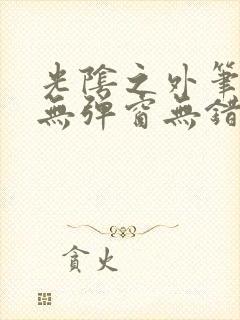 光陰之外筆
無彈窗無錯
貪火